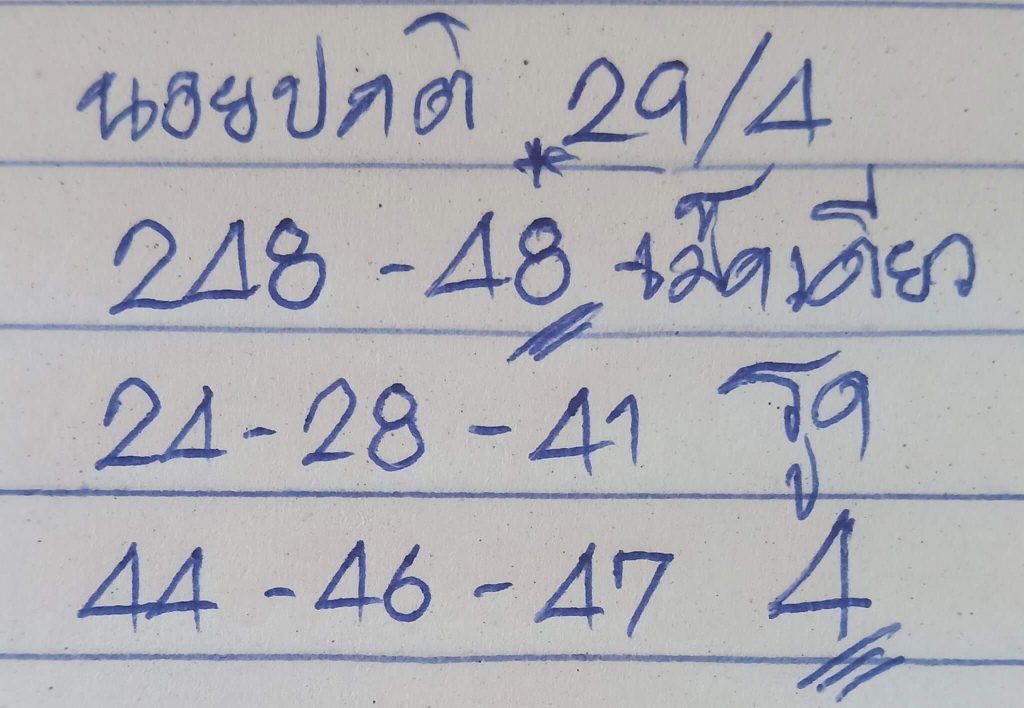 นอยปกติ 29/4
248 - 48 เม็ดเดียว
24 - 28 - 41 รูด
44 - 46 - 47 4